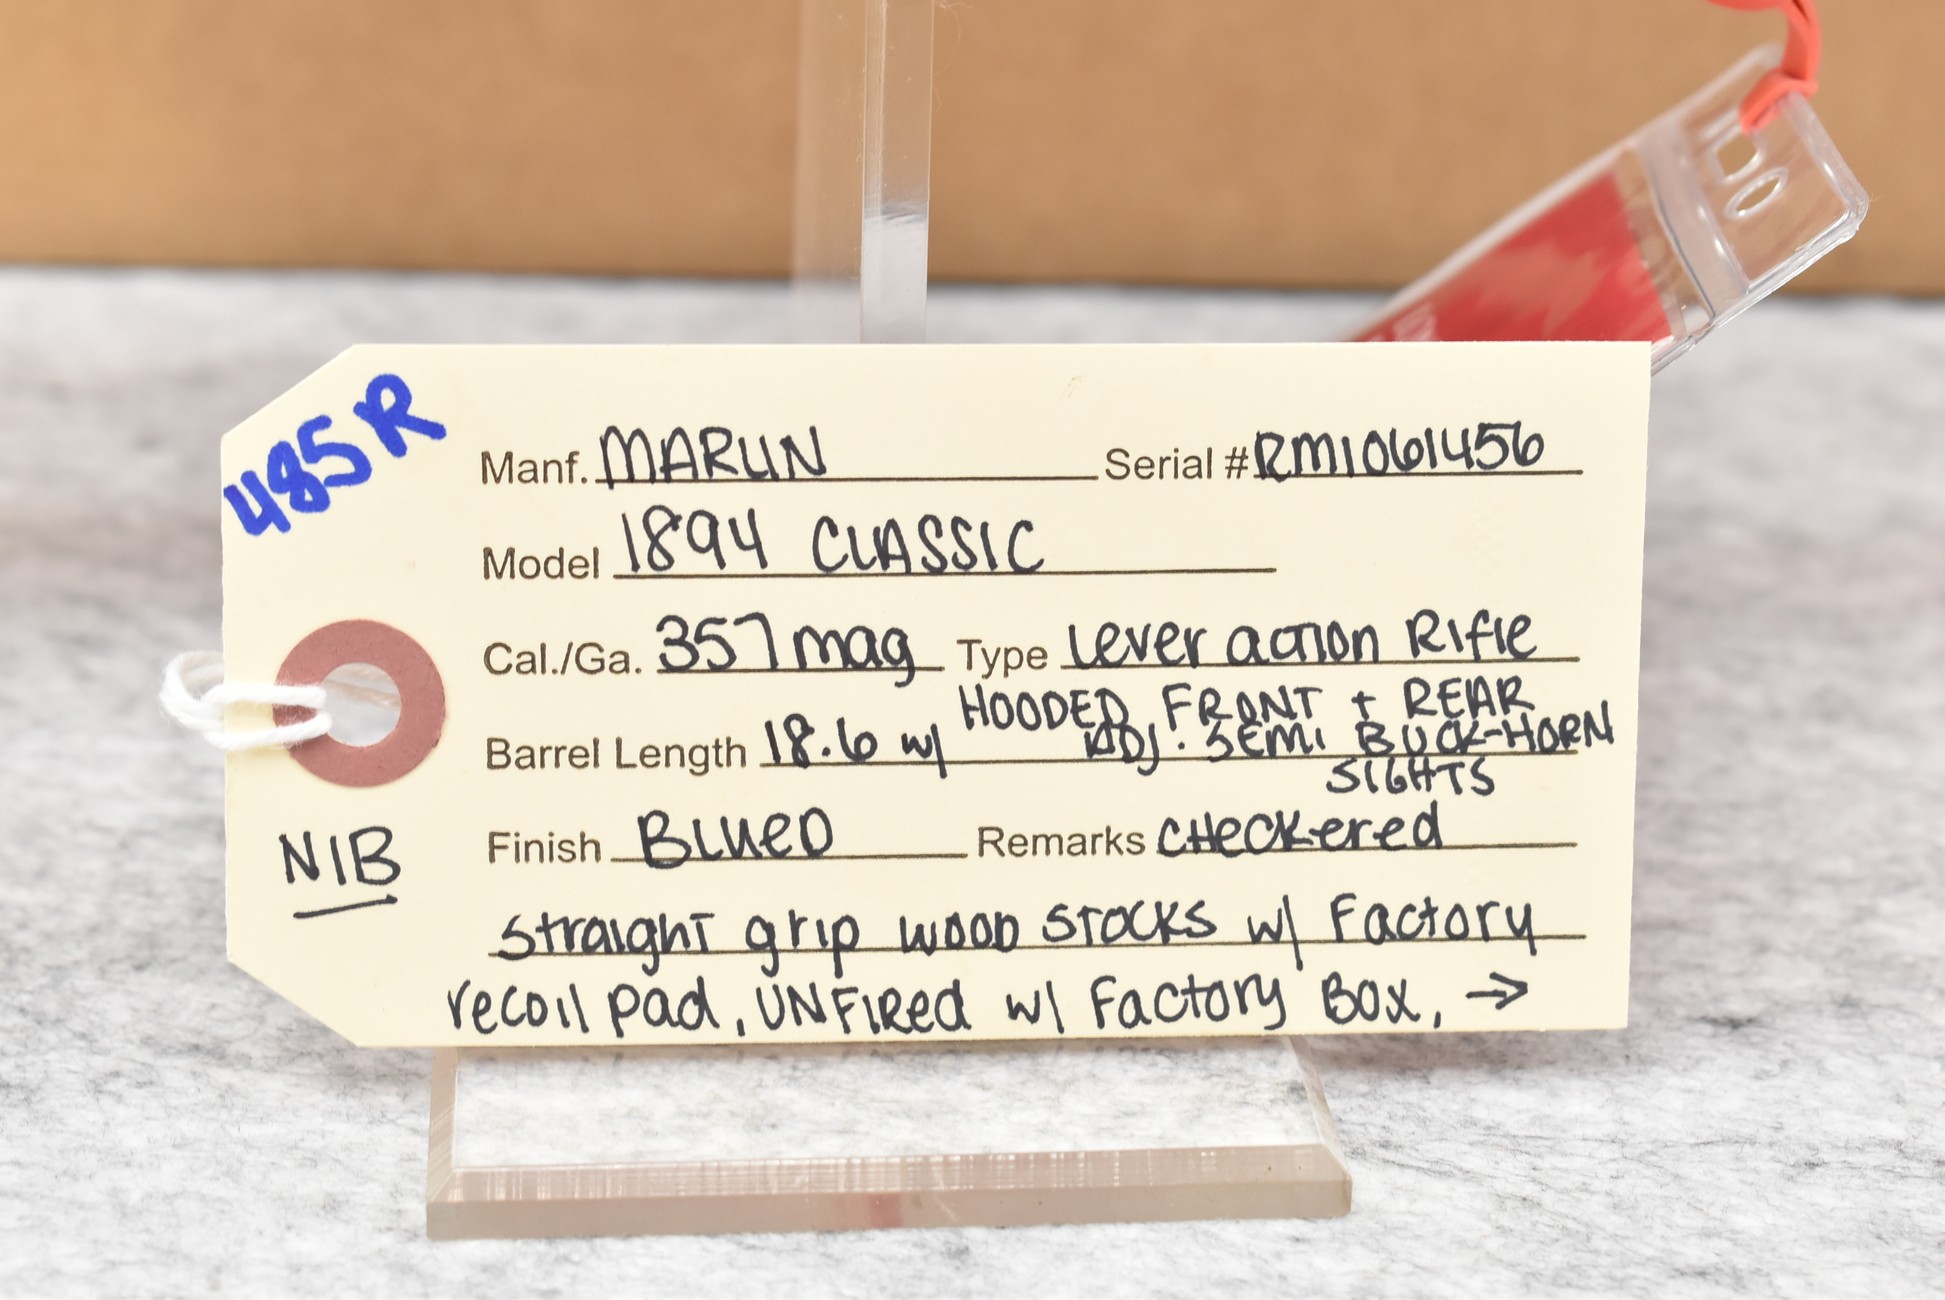 485R
Manf. MARLIN Serial # RM1061456
Model 1894 CLASSIC
Cal./Ga. 357 mag Type Lever action Rifle
HOODED FRONT + REAR
Barrel Length 18.6 w/ ADJ. SEMI BUCK-HORN
SIGHTS
Finish BLUED Remarks CHECKered
NIB
straight grip wood STOCKS w/ Factory
recoil pad, UNFIRed w/ Factory Box, →